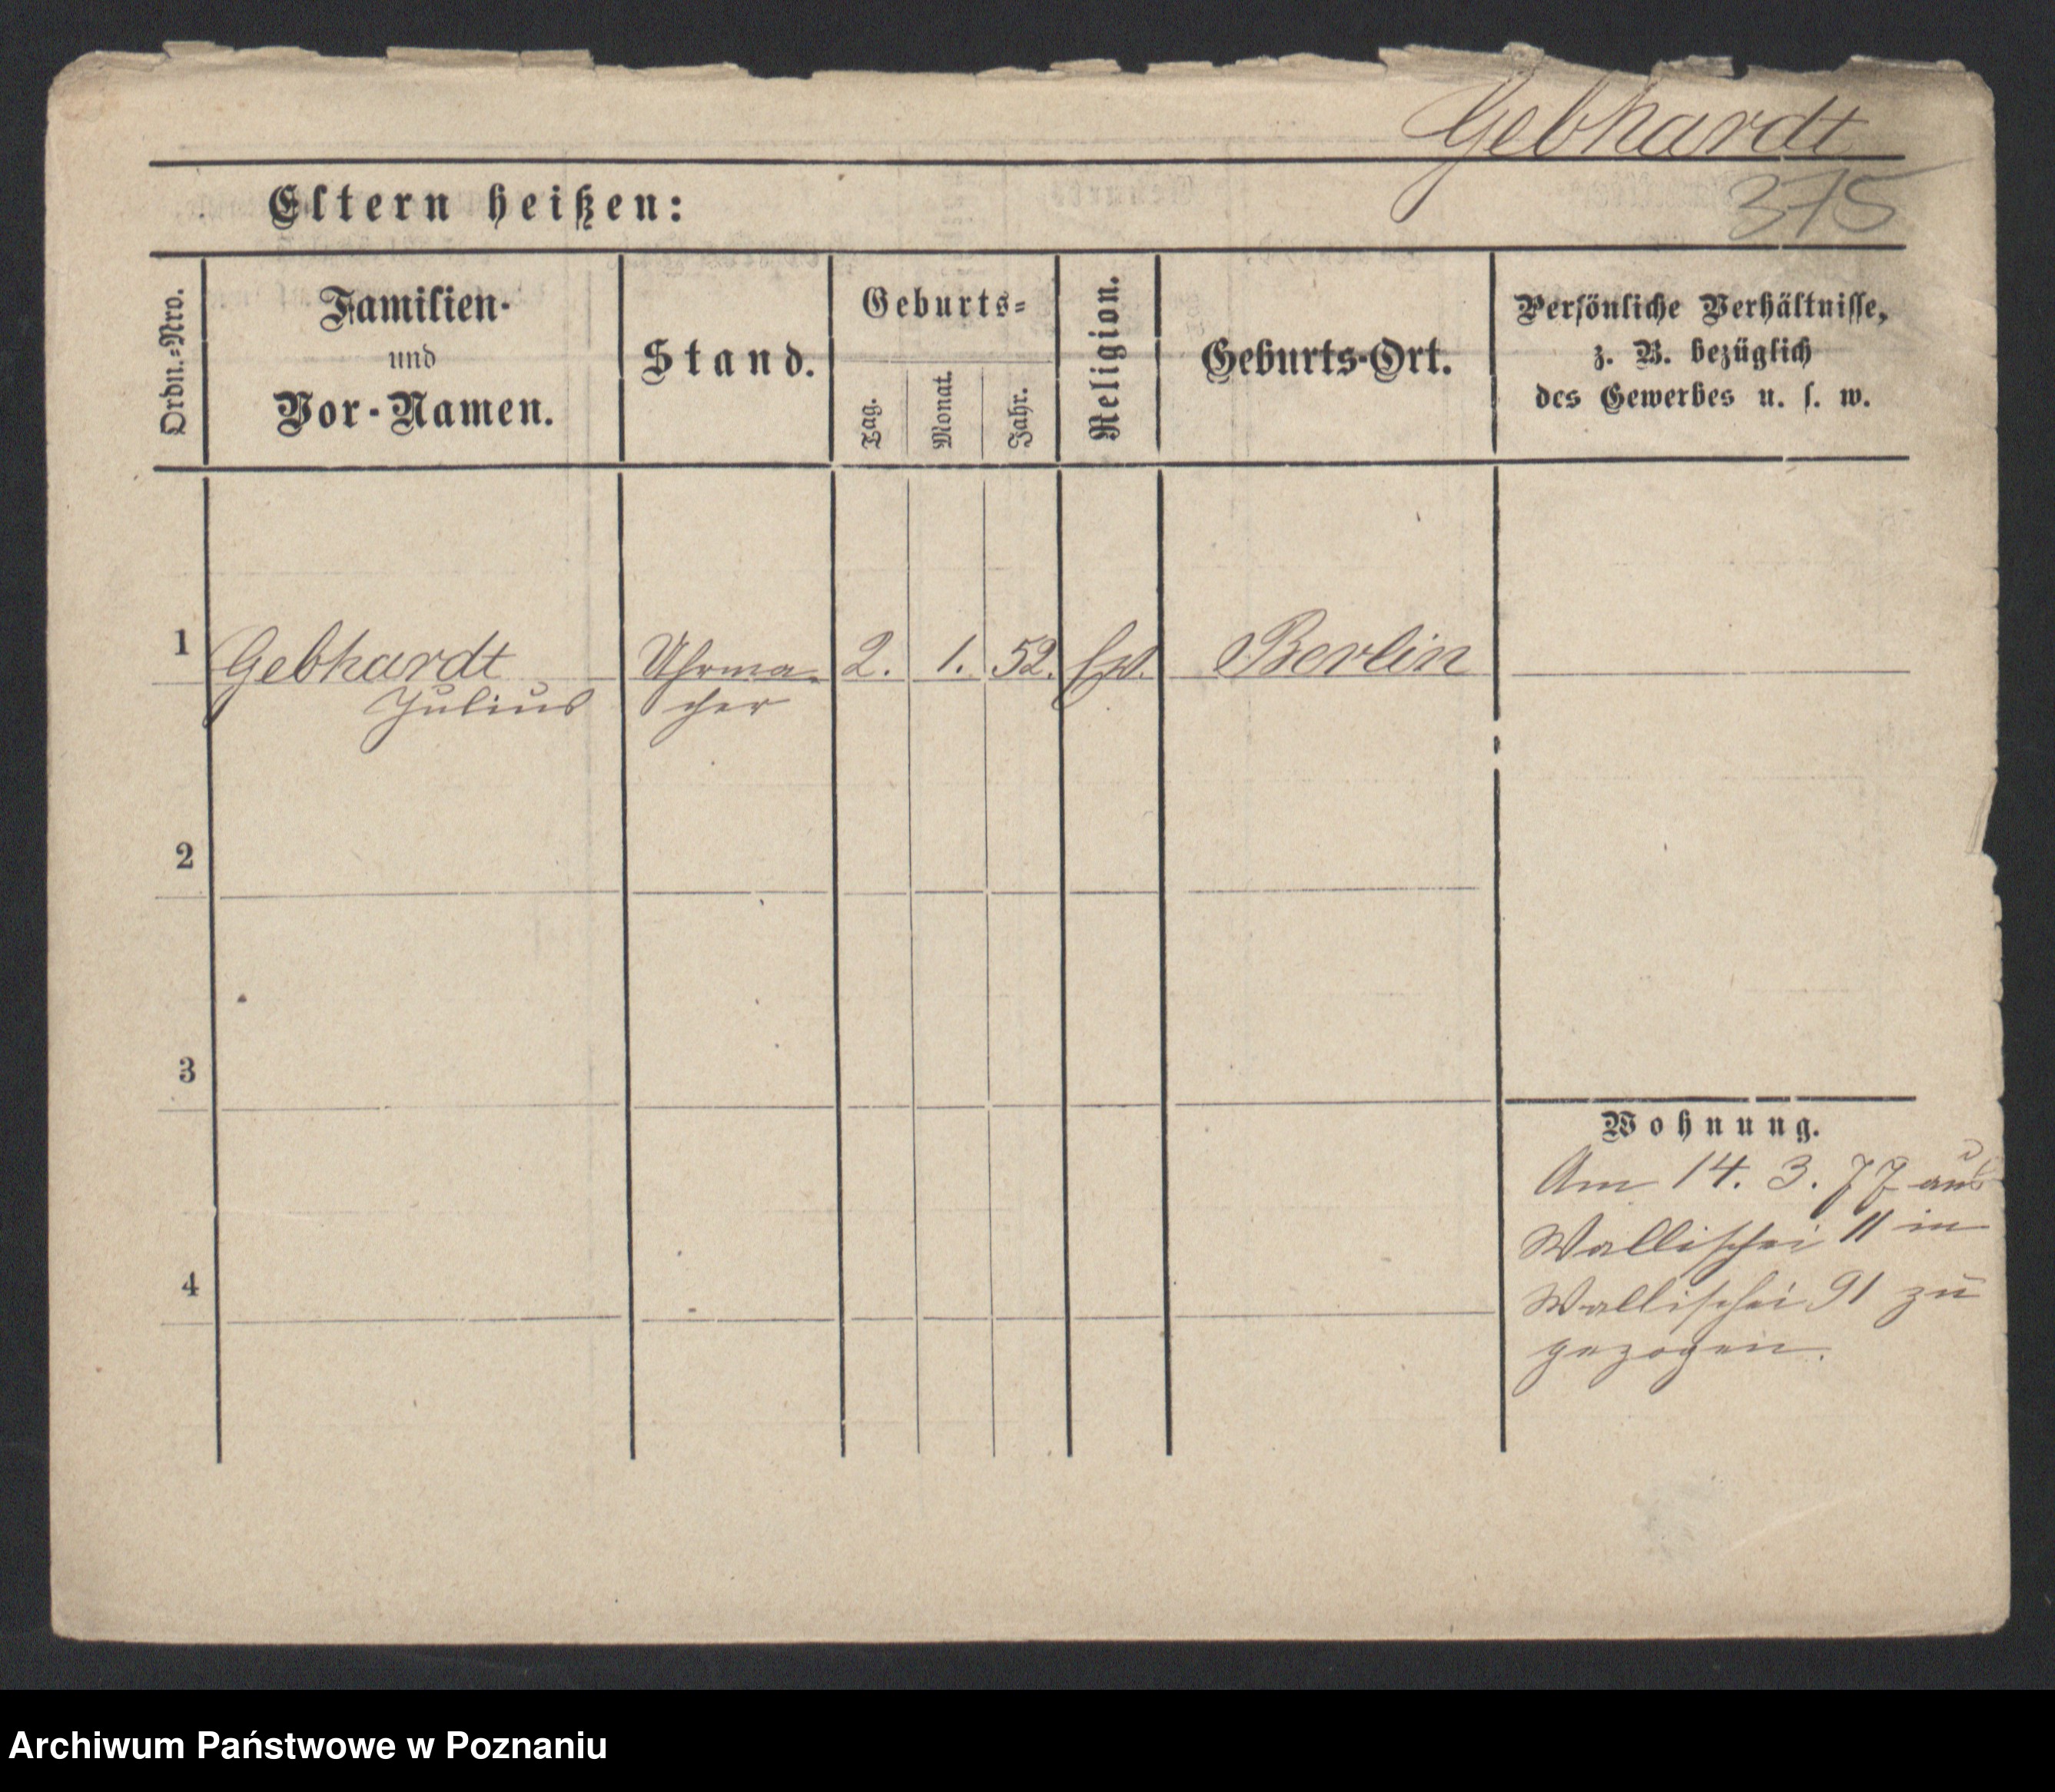 Gebhardt
375
Eltern heißen:
Ordn.=Nro.
Familien-
und
Vor-Namen.
Stand.
Geburts=
Tag.
Monat.
Jahr.
Religion.
Geburts-Ort.
Persönliche Verhältnisse,
z. B. bezüglich
des Gewerbes u. s. w.
1 Gebhardt Uhrma- 2. 1. 52. Ev. Berlin
Julius cher
2
3
4
Wohnung.
Am 14. 3. 77 aus
Wallischei 11 in
Wallischei 91 zu
gezogen.
Archiwum Państwowe w Poznaniu